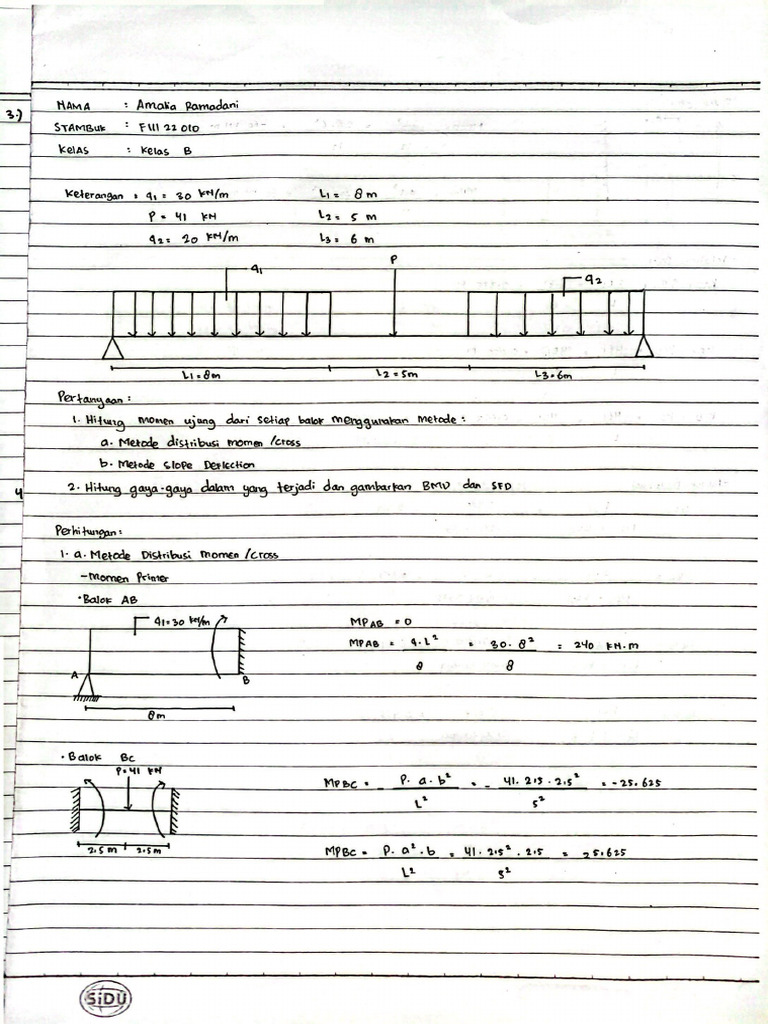 3.)
NAMA : Amalia Ramadani
STAMBUK : F111 22 010
KELAS : Kelas B
Keterangan : q1 = 30 kN/m L1 = 8 m
P = 41 kN L2 = 5 m
q2 = 20 kN/m L3 = 6 m
q1 P q2
L1 = 8m L2 = 5m L3 = 6m
Pertanyaan :
1. Hitung momen ujung dari setiap balok menggunakan metode :
a. Metode distribusi momen /cross
b. Metode Slope Deflection
4
2. Hitung gaya-gaya dalam yang terjadi dan gambarkan BMD dan SFD
Perhitungan :
1. a. Metode Distribusi momen /Cross
- Momen Primer
• Balok AB
q1 = 30 kN/m MPAB = 0
MPAB = q. L² / 8 = 30. 8² / 8 = 240 kN.m
A B
8m
• Balok BC
P = 41 kN
MPBC = - P. a. b² / L² = - 41. 2,5 . 2,5² / 5² = -25.625
2.5 m 2.5m
MPBC = P. a². b / L² = 41. 2,5². 2,5 / 5² = 25.625
SiDU